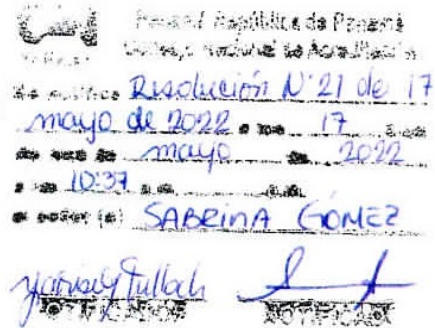 Panamá República de Panamá
Consejo Nacional de Acreditación
Se notifica Resolución N° 21 de 17
mayo de 2022 a los 17 días
del mes de mayo de 2022
a las 10:37 a.m.
al señor (a) SABRINA GÓMEZ
NOTIFICADOR NOTIFICADO